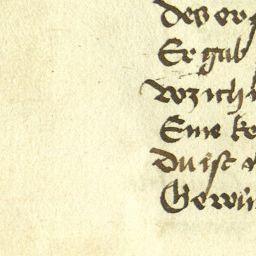 des er
Er gab
wz ich
Eine ke
Du ist
Gewin